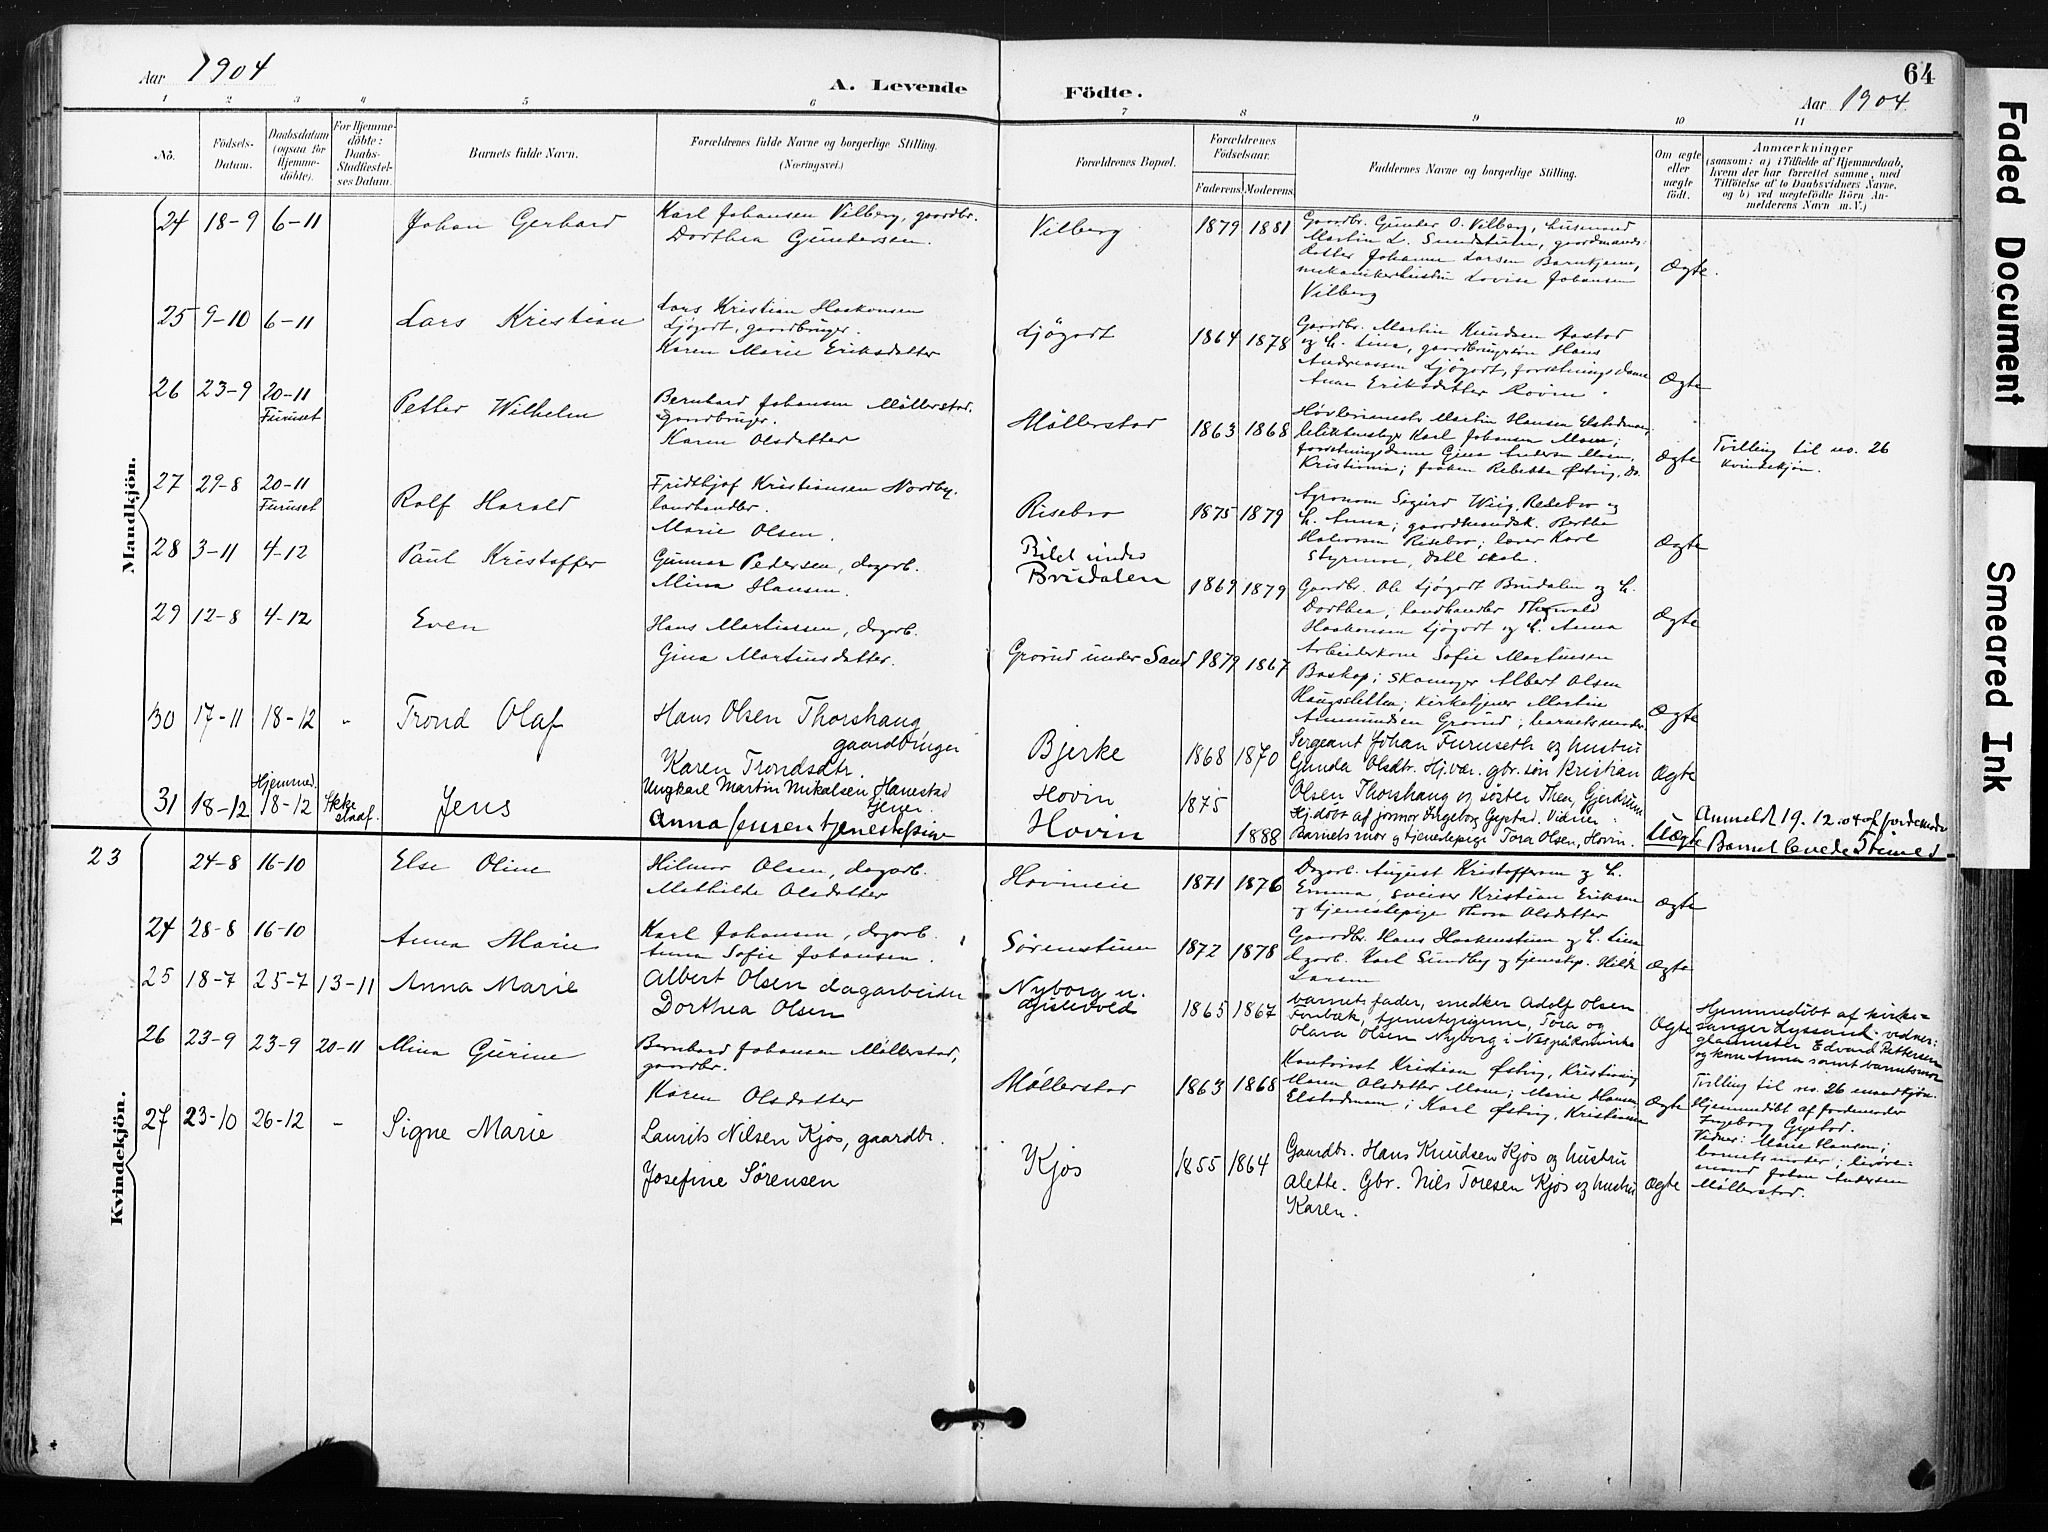 Aar 1904
A. Levende Födte.
64
Aar 1904
1 2 3 4 5 6 7 8 9 10 11
No.
Födsels-Datum.
Daabsdatum (ogsaa for Hjemme-döbte).
For Hjemme-döbte: Daabs-Stadfæstel-ses Datum.
Barnets fulde Navn.
Forældrenes fulde Navne og borgerlige Stilling.
(Næringsvei.)
Forældrenes Bopæl.
Forældrenes Födselsaar.
Faderens. Moderens.
Faddernes Navne og borgerlige Stilling.
Om ægte eller uægte födt.
Anmærkninger
(saasom: a) i Tilfælde af Hjemmedaab,
hvem der har forrettet samme, med
Tilföielse af to Daabsvidners Navne,
og b) ved uægtefödte Börn An-
melderens Navn m. V.)
Mandkjön.
24 18-9 6-11 Johan Gerhard
Karl Johansen Vilberg, gaardbr.
Dorthea Gundersen.
Vilberg 1879 1881
Gaardbr. Gunder O. Vilberg, husmand
Martin L. Sundstuen, gaardmands-
datter Johanne Larsen
Lovise Johansen
Vilberg
Ægte.
25 9-10 6-11 Lars Kristian
Lars Kristian Haakonsen
Ljøgodt, gaardbruger.
Karen Marie Eriksdatter
Ljøgodt 1864 1878
Gaardbr. Martin Knudsen Aastad
og h. Lina, gaardbrugersøn Hans
Andreassen Ljøgodt, forretningsdame
Anne Eriksdatter Hovin.
Ægte
26 23-9 20-11 Furuset Petter Wilhelm
Bernhard Johansen Møllerstad,
gaardbruger.
Karen Olsdatter
Møllerstad 1863 1868
Martin Hansen Elstadmoen,
Karl Johansen Moen;
forretningsdame Gina Andersen Moen,
Kristiania; frøken Rebekka Østby, do.
Ægte
Tvilling til no. 26
kvindekjøn.
27 29-8 20-11 Furuset Rolf Harald
Fridthjof Kristiansen Nordby,
landhandler.
Marie Olsen.
Risebro 1875 1879
Agronom Sigurd Wiig, Risebro og
h. Anna; gaardmandsk. Berthe
Halvorsen Risebro; lærer Karl
Styrmoe, Dahl skole.
Ægte
28 3-11 4-12 Paul Kristoffer
Gunnar Pedersen, dagarb.
Mina Hansen.
under
Brudalen 1869 1879
Gaardbr. Ole Ljøgodt Brudalen og h.
Dorthea; landhandler Thorvald
Haakonsen Ljøgodt og h. Anna
Ægte
29 12-8 4-12 Even
Hans Martinsen, dagarb.
Gina Martinsdatter.
Grønd under Sand 1879 1867
Arbeiderkone Sofie Martinsen
Bakkop; skomager Albert Olsen
Haugsletten; kirketjener Martin
Ammundsen Grønd; barnets moder
Ægte
30 17-11 18-12 - Trond Olaf
Hans Olsen Thorshaug
gaardbruger
Karen Trondsdtr.
Bjerke 1868 1870
Sergeant Johan Furuseth og hustru
Gunda Olsdtr. Hj.vær. gbr. søn Kristian
Olsen Thorshaug og søster Thea, Gjerdrum
Ægte
31 18-12 Hjemmed. 18-12 Ikke stadf. Jens
Ungkarl Martin Mikalsen Hanestad
tjener.
Anna Jensen tjenestepike
Hovin 1875
Hovin 1888
Hj.døbt af jormor Ingeborg Gystad. Vidner:
Barnets mor og tjenestepige Tora Olsen, Hovin.
Uægte
Anmeldt 19.12.04 af jordemoder
Barnet levede 5 timer
Kvindekjön.
23 24-8 16-10 Else Oline
Hilmar Olsen, dagarb.
Mathilde Olsdatter
Hovineie 1871 1876
Dagarb. August Kristoffersen og h.
Emma, sveiser Kristian Eriksen
og tjenestepige Thora Olsdatter
Ægte
24 28-8 16-10 Anna Marie
Karl Johansen, dagarb.
Anna Sofie Johansen.
Sørenstuen 1872 1878
Gaardbr. Hans Haakenstuen og h. Lina
dagarb. Karl Sundby og tjenestep. Hilda
Larsen
Ægte
25 18-7 25-7 13-11 Anna Marie
Albert Olsen dagarbeider
Dorthea Olsen
Nyborg u.
Gislevold 1865 1867
barnets fader, snedker Adolf Olsen
Fonbæk, tjenestepigerne, Tora og
Olava Olsen Nyborg i Nes på Romerike
Ægte
Hjemmedøbt af kirke-
sanger Lyssand, vidner:
glasmester Edvard Pettersen
og kone Anna samt barnets mor
26 23-9 23-9 20-11 Mina Gurine
Bernhard Johansen Møllerstad,
gaardbr.
Karen Olsdatter
Møllerstad 1863 1868
Kontorist Kristian Østby, Kristiania;
Maren Olsdatter Moen; Marie Hansen
Elstadmoen; Karl Østby, Kristiania
Ægte
Tvilling til no. 26 mandkjøn.
Hjemmedöbt af jordemoder
Ingeborg Gystad.
Vidner: Marie Hansen;
barnets moder;
mand Johan Andersen
Møllerstad.
27 23-10 26-12 - Signe Marie
Laurits Nilsen Kjos, gaardbr.
Josefine Sørensen
Kjos 1855 1864
Gaardbr. Hans Knudsen Kjos og hustru
Alette. Gbr. Nils Toresen Kjos og hustru
Karen.
Ægte
Faded Document
Smeared Ink